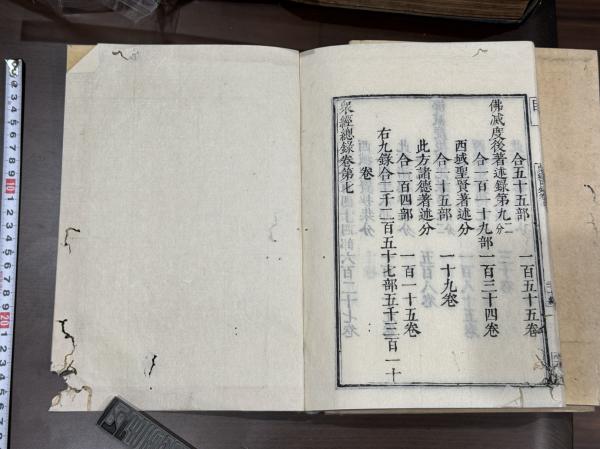 合五十五部 一百五十五卷
佛滅度後著述錄第九二分
合一百一十九部 一百三十四卷
西域聖賢著述分
合一十五部 一十九卷
此方諸德著述分
合一百四部 一百一十五卷
右九錄合二千二百五十七部五千三百一十
卷
衆經總錄卷第七
10
20